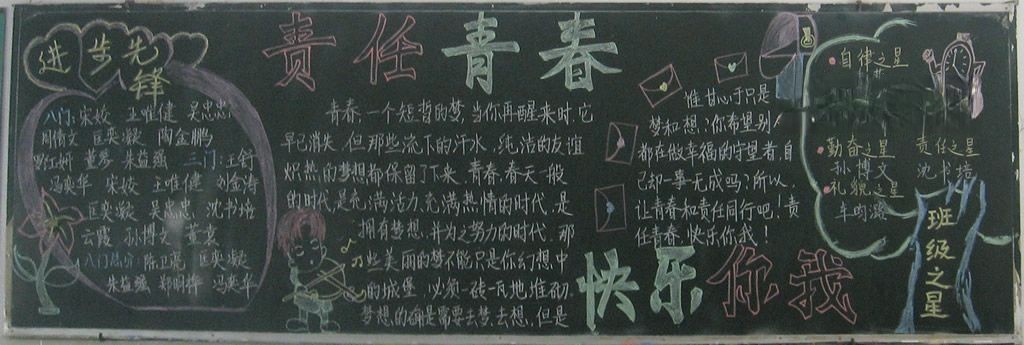 进步先锋
八门:宋姣 王唯健 吴忠忠
周倩文 匡奕凝 陶金鹏
三门:王钎
冯英华 宋姣 王唯健 刘金涛
匡奕凝 吴忠忠 沈书培
云霞 孙博文 董袁
匡奕凝
朱益蕴 冯英华
责任青春
青春,一个短暂的梦,当你再醒来时,它
早已消失,但那些流下的汗水,纯洁的友谊
炽热的梦想都保留了下来,青春,春天一般
的时代,是充满活力,充满热情的时代,是
拥有梦想,并为之努力的时代,那
些美丽的梦不能只是你幻想中
的城堡,必须一砖一瓦地堆砌,
梦想的确是需要去梦,去想,但是
谁甘心于只是
梦和想;你希望别人
都在做幸福的守望者,自
己却一事无成吗?所以,
让青春和责任同行吧!责
任青春,快乐你我!
快乐你我
自律之星
勤奋之星 责任之星
孙博文 沈书培
礼貌之星
班级之星